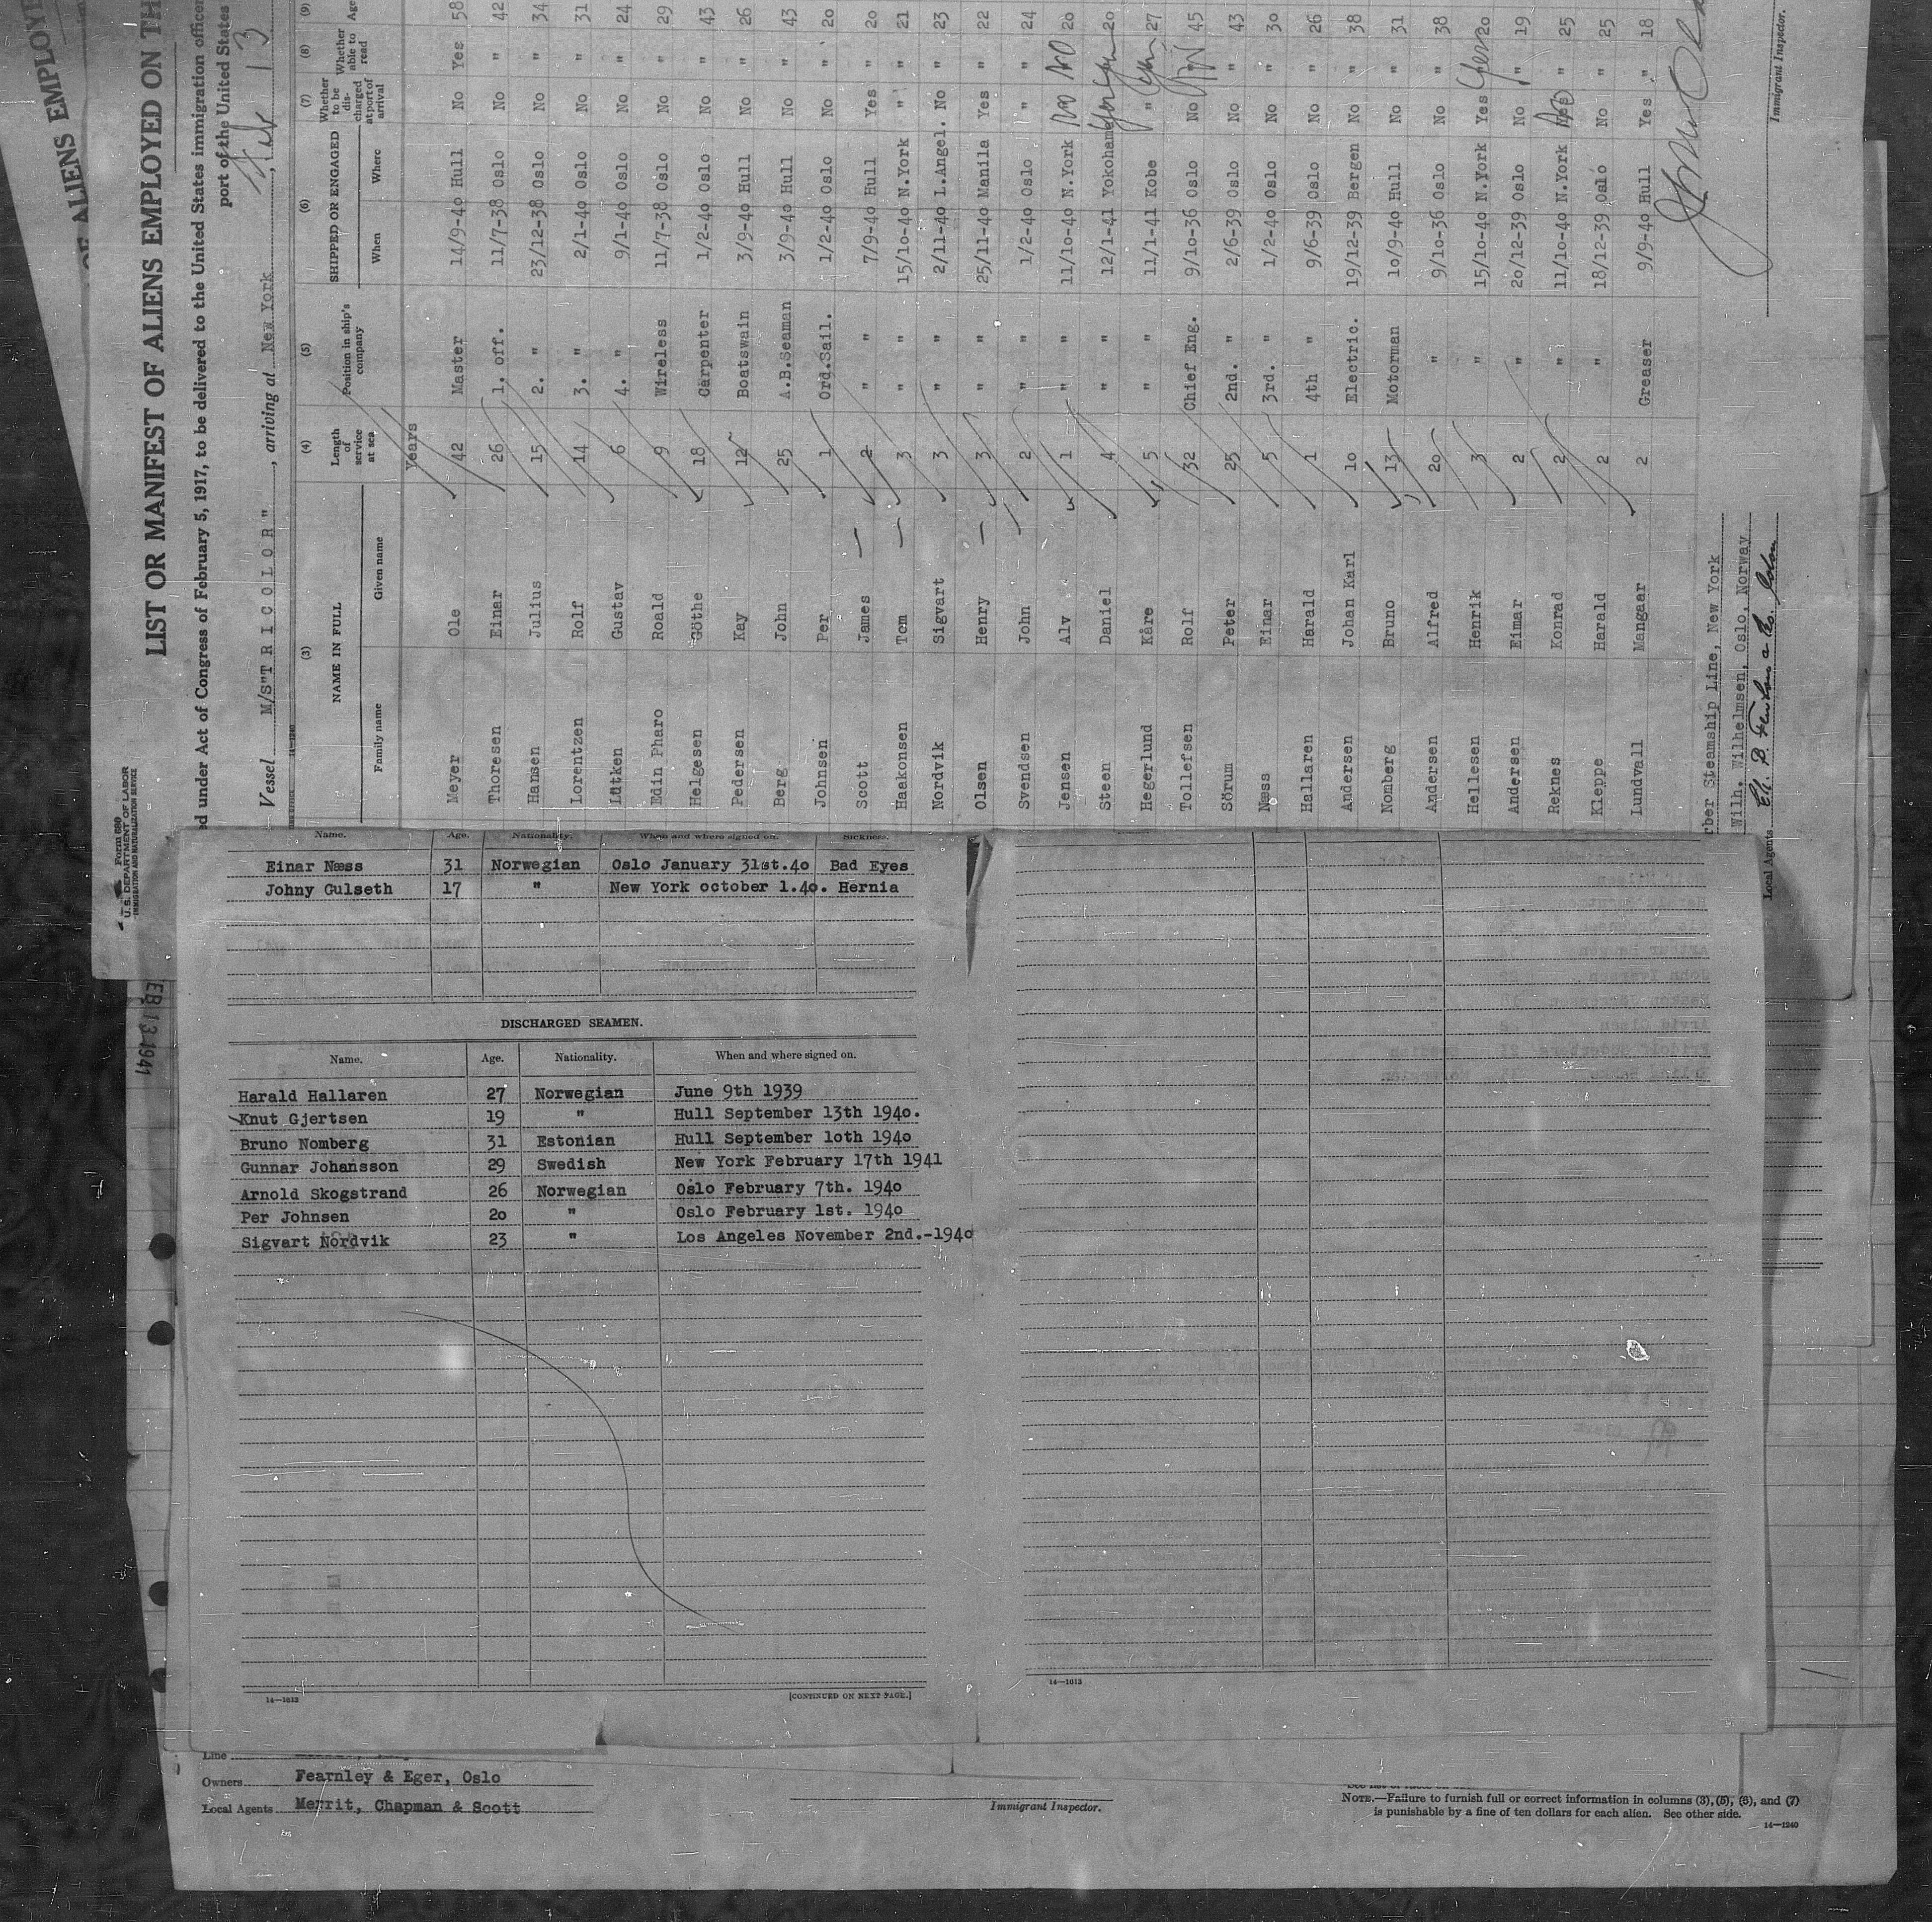 OF ALIENS EMPLOYE
LIST OR MANIFEST OF ALIENS EMPLOYED ON TH
ed under Act of Congress of February 5, 1917, to be delivered to the United States immigration officer
port of the United States
Form 680
U. S. DEPARTMENT OF LABOR
IMMIGRATION AND NATURALIZATION SERVICE
Vessel M/S"T R I C O L O R", arriving at New York, Feb 13
(3) (4) (5) (6) (7) (8) (9)
NAME IN FULL Length of service at sea Position in ship's company SHIPPED OR ENGAGED Whether to be discharged at port of arrival Whether able to read Age
Family name Given name When Where
Years
Meyer Ole 42 Master 14/9-40 Hull No Yes 58
Thoresen Einar 26 1. off. 11/7-38 Oslo No " 42
Hansen Julius 15 2. " 23/12-38 Oslo No " 34
Lorentzen Rolf 14 3. " 2/1-40 Oslo No " 31
Lütken Gustav 6 4. " 9/1-40 Oslo No " 24
Edin Pharo Roald 9 Wireless 11/7-38 Oslo No " 29
Helgesen Göthe 18 Carpenter 1/2-40 Oslo No " 43
Pedersen Kay 12 Boatswain 3/9-40 Hull No " 26
Berg John 25 A.B.Seaman 3/9-40 Hull No " 43
Johnsen Per 1 Ord.Sail. 1/2-40 Oslo No " 20
Scott James 2 " " 7/9-40 Hull Yes " 20
Haakonsen Tom 3 " " 15/10-40 N.York " " 21
Nordvik Sigvart 3 " " 2/11-40 L.Angel. No " 23
Olsen Henry 3 " " 25/11-40 Manila Yes " 22
Svendsen John 2 " " 1/2-40 Oslo " " 24
Jensen Alv 1 " " 11/10-40 N.York No No 20
Steen Daniel 4 " " 12/1-41 Yokohama 20
Hegerlund Kåre 5 " " 11/1-41 Kobe " 27
Tollefsen Rolf 32 Chief Eng. 9/10-36 Oslo No 45
Sörum Peter 25 2nd. " 2/6-39 Oslo No " 43
Næss Einar 5 3rd. " 1/2-40 Oslo No " 30
Hallaren Harald 1 4th " 9/6-39 Oslo No " 26
Andersen Johan Karl 10 Electric. 19/12-39 Bergen No " 38
Nomberg Bruno 13 Motorman 10/9-40 Hull No " 31
Andersen Alfred 20 " 9/10-36 Oslo No " 38
Hellesen Henrik 3 " 15/10-40 N.York Yes 20
Andersen Eimar 2 " 20/12-39 Oslo No " 19
Reknes Konrad 2 " 11/10-40 N.York No " 25
Kleppe Harald 2 " 18/12-39 Oslo No " 25
Lundvall Mangaar 2 Greaser 9/9-40 Hull Yes " 18
rber Steamship Line, New York
Wilh. Wilhelmsen, Oslo, Norway
Local Agents
Immigrant Inspector.
EB 13 1941
Name. Age. Nationality. When and where signed on. Sickness.
Einar Næss 31 Norwegian Oslo January 31st.40 Bad Eyes
Johny Gulseth 17 " New York october 1.40. Hernia
DISCHARGED SEAMEN.
Name. Age. Nationality. When and where signed on.
Harald Hallaren 27 Norwegian June 9th 1939
Knut Gjertsen 19 " Hull September 13th 1940.
Bruno Nomberg 31 Estonian Hull September 1oth 1940
Gunnar Johansson 29 Swedish New York February 17th 1941
Arnold Skogstrand 26 Norwegian Oslo February 7th. 1940
Per Johnsen 20 " Oslo February 1st. 1940
Sigvart Nordvik 23 " Los Angeles November 2nd.-1940
14—1613
[CONTINUED ON NEXT PAGE.]
14—1613
Line
Owners Fearnley & Eger, Oslo
Local Agents Merrit, Chapman & Scott
Immigrant Inspector.
NOTE.—Failure to furnish full or correct information in columns (3), (5), (6), and (7)
is punishable by a fine of ten dollars for each alien. See other side.
14—1240